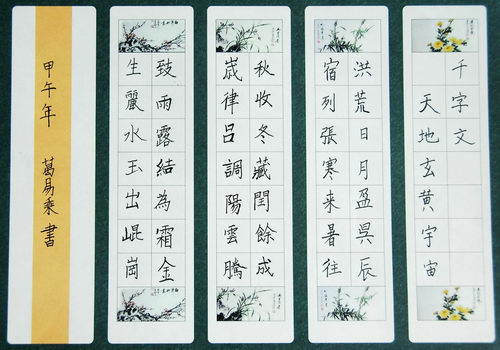 千字文
天地玄黄宇宙
洪荒日月盈昃辰
宿列張寒来暑往
秋收冬藏閏餘成
嵗律吕調陽雲騰
致雨露結為霜金
生麗水玉出崐崗
甲午年 葛易乘書